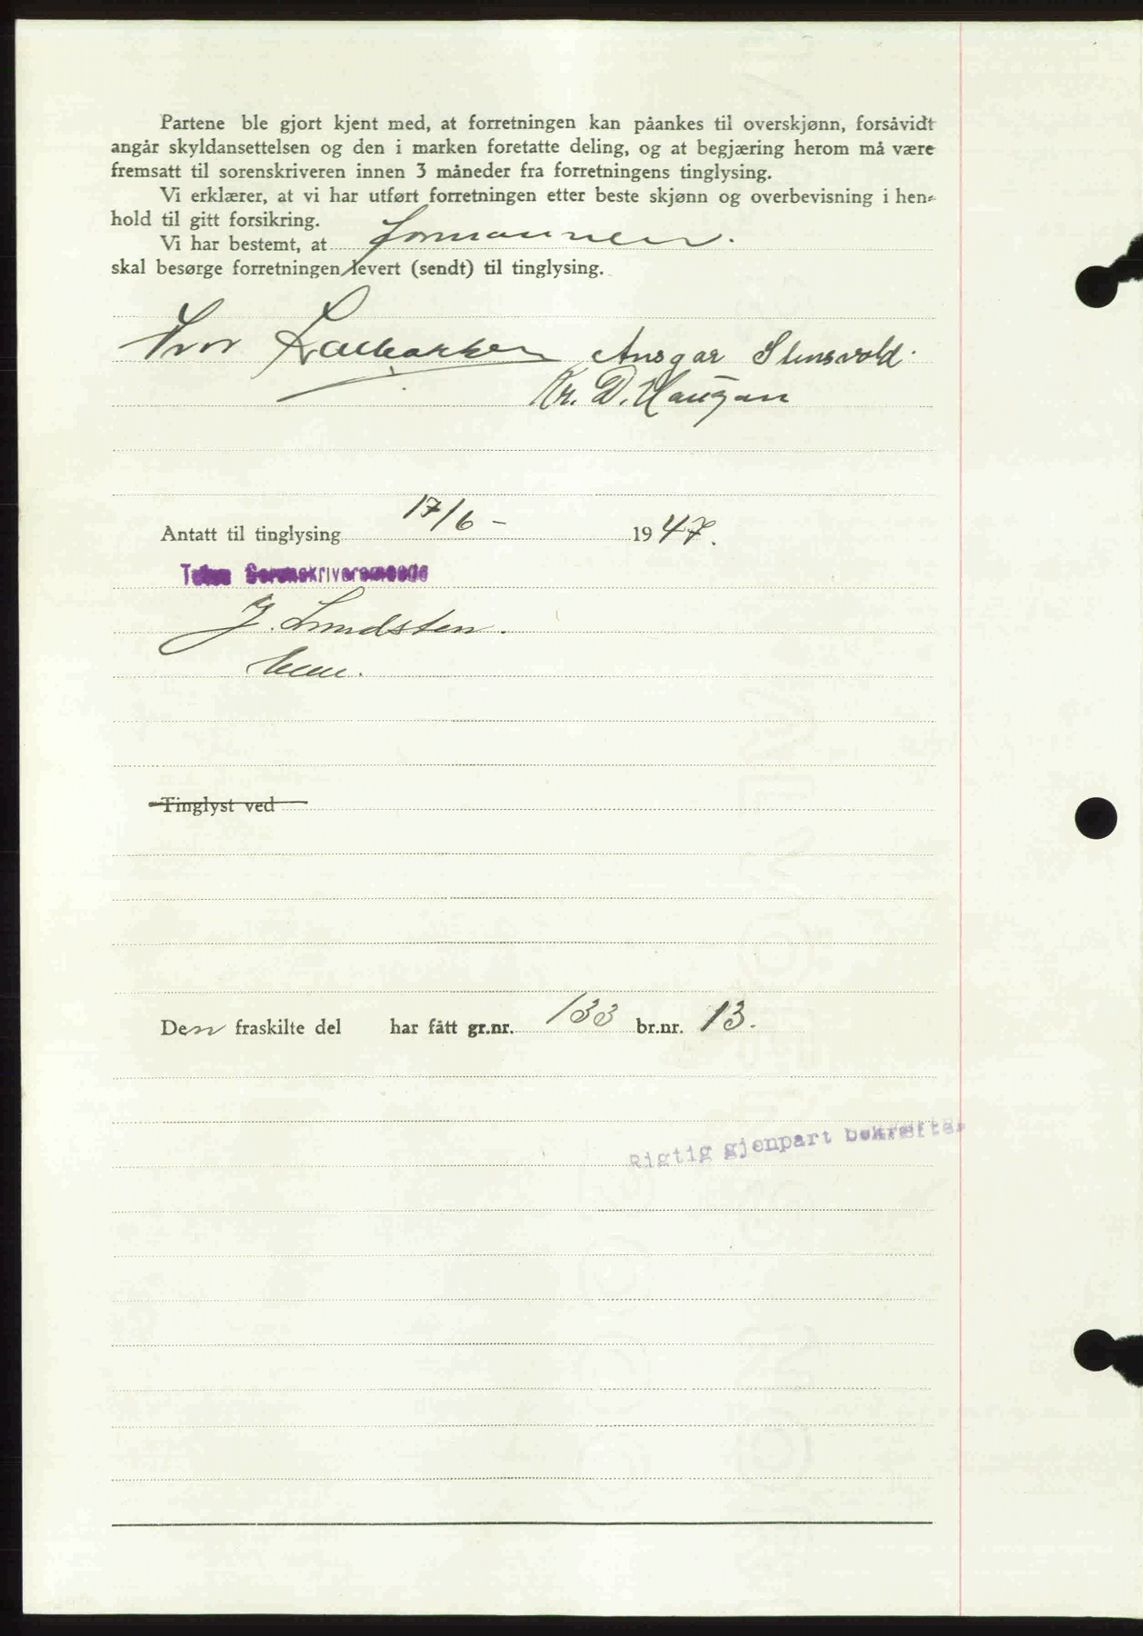 Partene ble gjort kjent med, at forretningen kan påankes til overskjønn, forsåvidt
angår skyldansettelsen og den i marken foretatte deling, og at begjæring herom må være
fremsatt til sorenskriveren innen 3 måneder fra forretningens tinglysing.
Vi erklærer, at vi har utført forretningen etter beste skjønn og overbevisning i hen-
hold til gitt forsikring.
Vi har bestemt, at formannen.
skal besørge forretningen levert (sendt) til tinglysing.
Ansgar Stensvold.
Kr. D. Haugan
Antatt til tinglysing 17/6 - 1947.
Toten Sorenskriverembede
J. Lundsten.
Tinglyst ved
Den fraskilte del har fått gr.nr. 133 br.nr. 13.
Rigtig gjenpart bekreftes